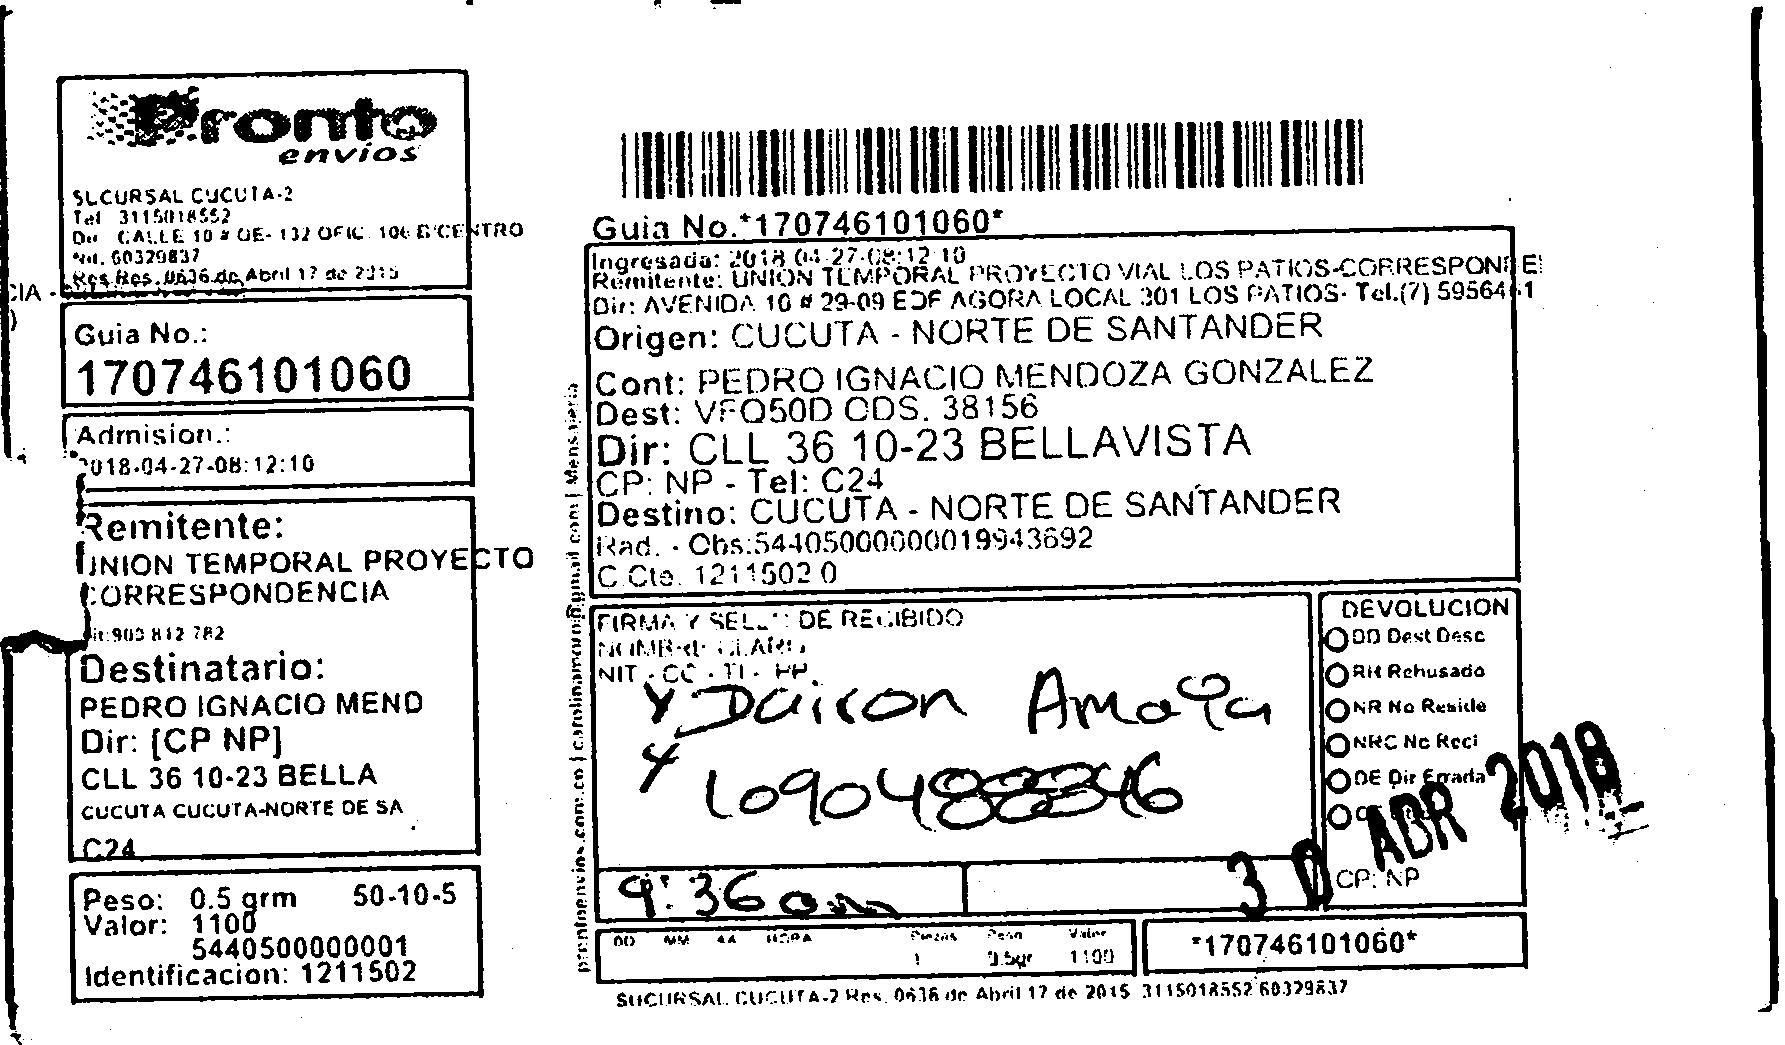 Pronto
envios
SUCURSAL CUCUTA-2
Tel 3115018552
Dir CALLE 10 # OE- 132 OFIC. 106 B/CENTRO
Nit. 60329837
Res Res. 0636 de Abril 17 de 2015
CIA -
)
Guia No.:
170746101060
Admision.:
2018-04-27-08:12:10
Remitente:
UNION TEMPORAL PROYECTO
CORRESPONDENCIA
Nit:900 812 782
Destinatario:
PEDRO IGNACIO MEND
Dir: [CP NP]
CLL 36 10-23 BELLA
CUCUTA CUCUTA-NORTE DE SA
C24
Peso: 0.5 grm 50-10-5
Valor: 1100
5440500000001
Identificacion: 1211502
prontoenvios.com.co | carolinamaro@gmail.com | Mensajeria
Guia No.*170746101060*
Ingresada: 2018-04-27-08:12:10
Remitente: UNION TEMPORAL PROYECTO VIAL LOS PATIOS-CORRESPONDE
Dir: AVENIDA 10 # 29-09 EDF AGORA LOCAL 301 LOS PATIOS- Tel.(7) 5956461
Origen: CUCUTA - NORTE DE SANTANDER
Cont: PEDRO IGNACIO MENDOZA GONZALEZ
Dest: VFQ50D CDS. 38156
Dir: CLL 36 10-23 BELLAVISTA
CP: NP - Tel: C24
Destino: CUCUTA - NORTE DE SANTANDER
Rad. - Obs:54405000000019943692
C.Cte. 1211502 0
FIRMA Y SELLO DE RECIBIDO
NOMBRE CLARO
NIT - CC - TI - PP.
Y Dairon Amaya
Y 1090488346
9:36 am
DEVOLUCION
DD Dest Desc
RH Rehusado
NR No Reside
NRC No Reci
DE Dir Errada
30 ABR 2018
CP: NP
DD MM AA HORA Piezas Peso Valor
1 0.5gr 1100
*170746101060*
SUCURSAL CUCUTA-2 Res. 0636 de Abril 17 de 2015 3115018552 60329837